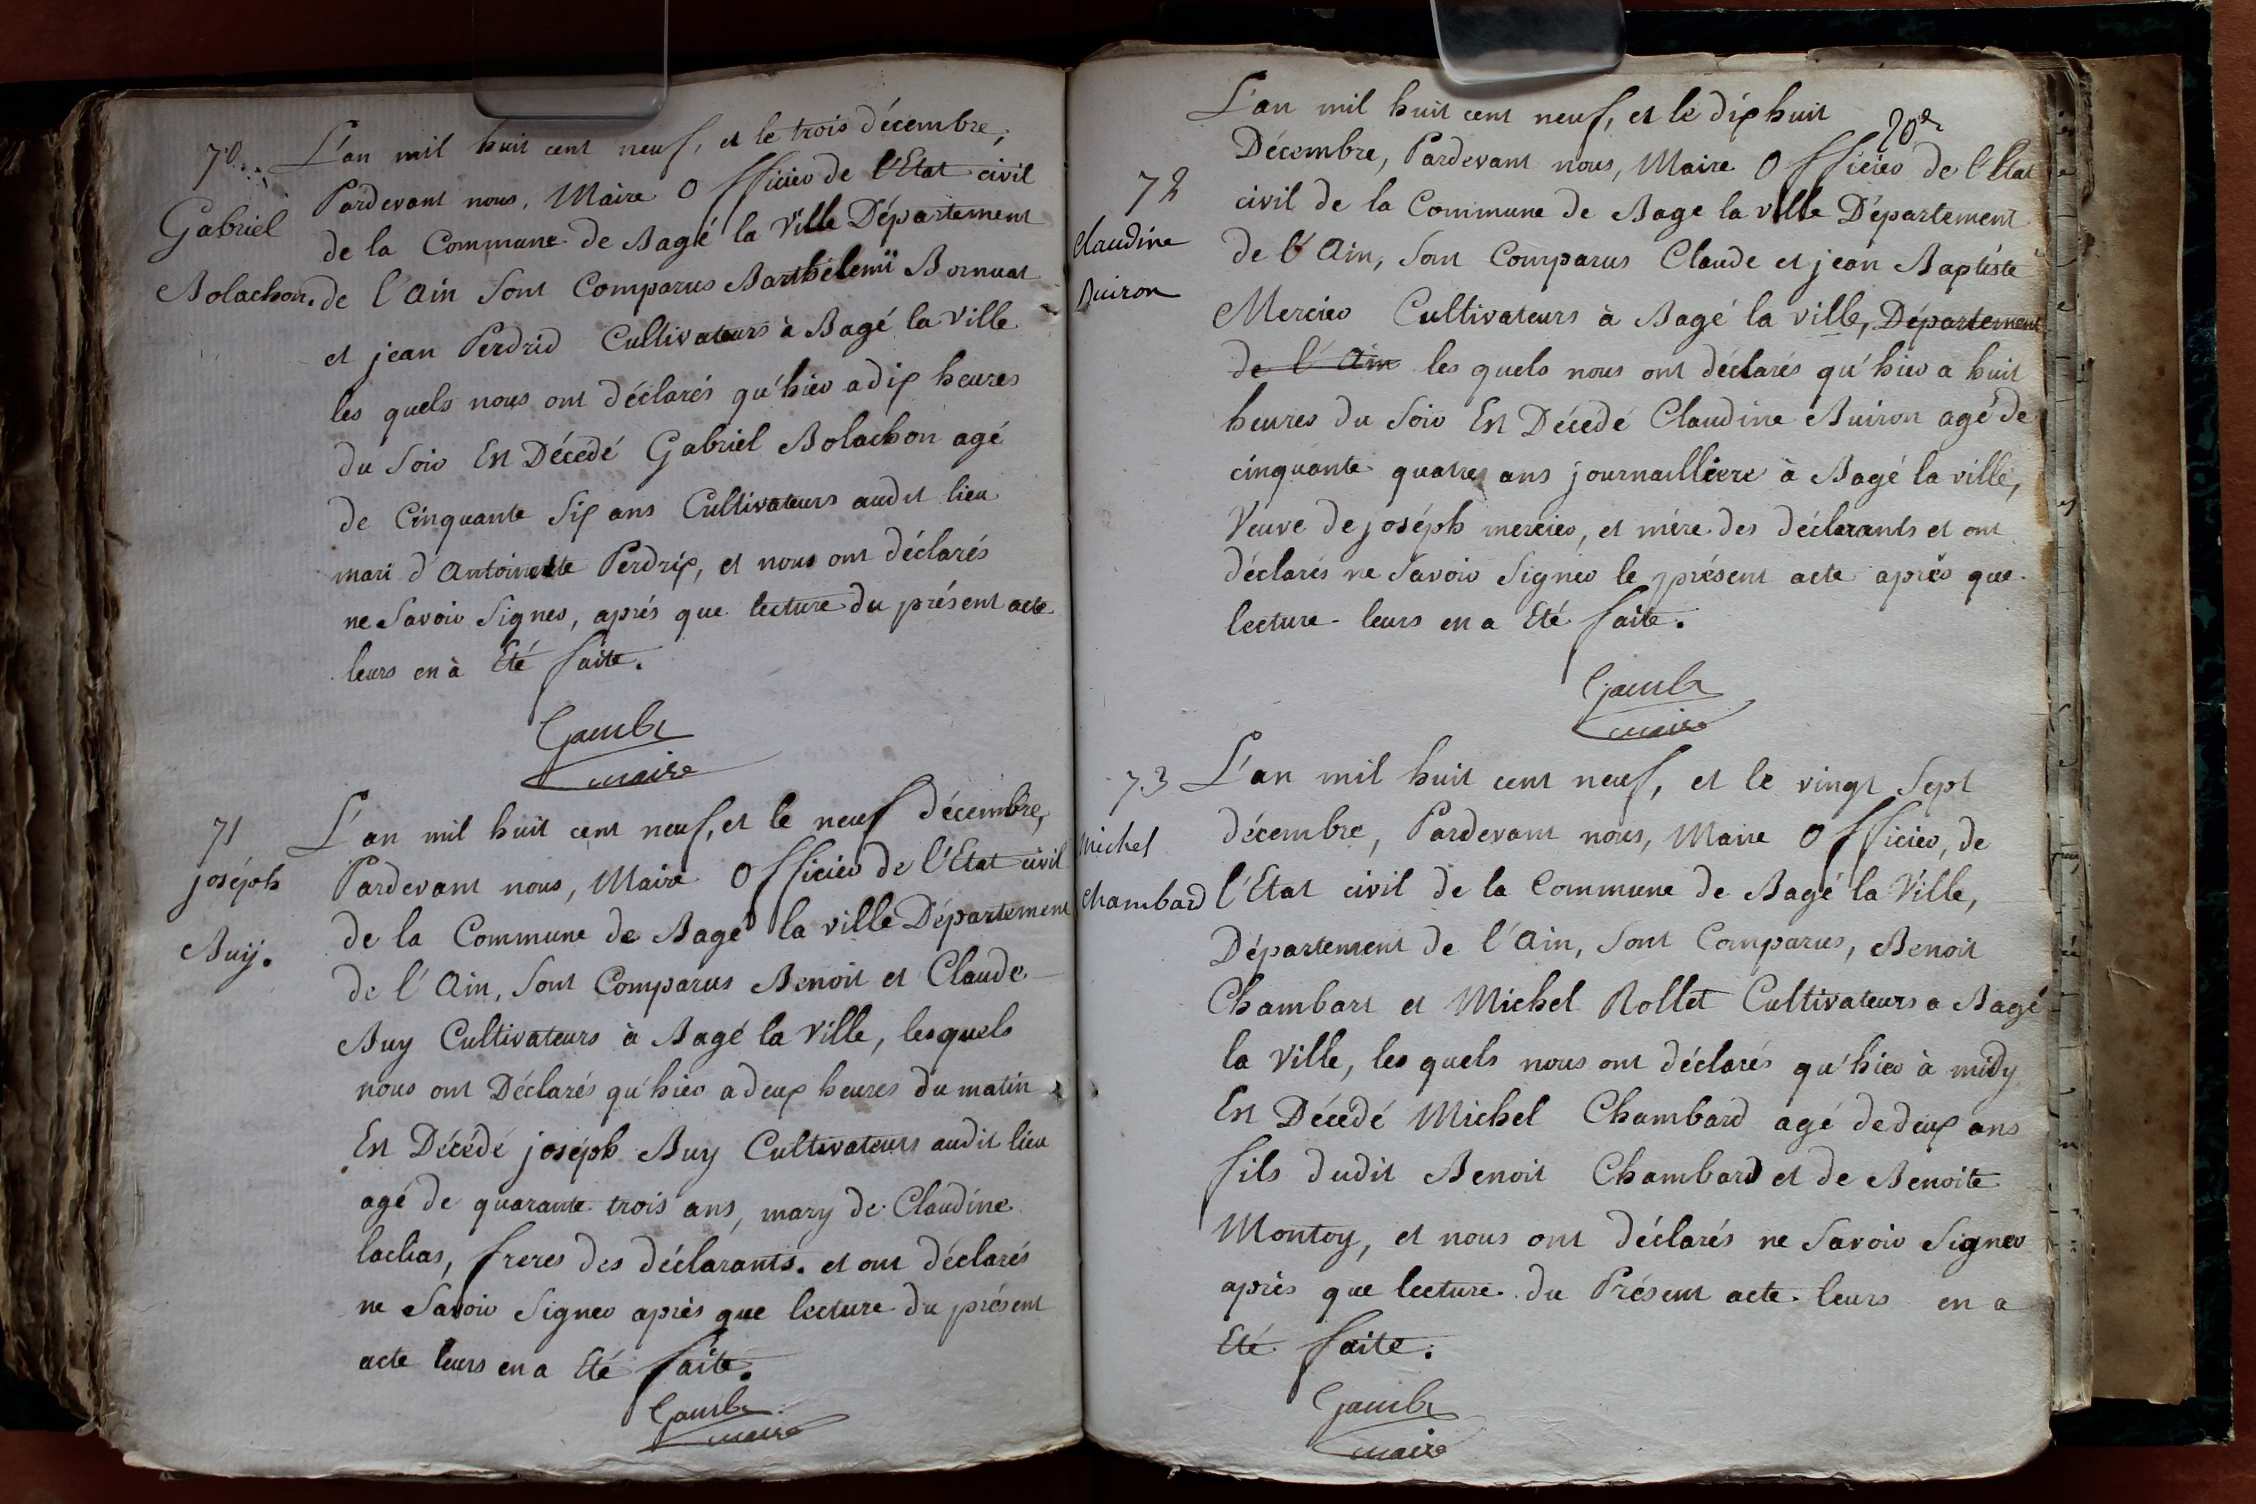 70.
Gabriel
Bolachon.
L'an mil huit cent neuf, et le trois décembre,
Pardevant nous, Maire Officier de l'Etat civil
de la Commune de Bagé la Ville Département
de l'Ain sont Comparus Barthélemï Bornuat
et jean Perdrid Cultivateurs à Bagé la Ville
les quels nous ont déclarés qu'hier a dix heures
du soir Est Décédé Gabriel Bolachon agé
de Cinquante six ans Cultivateurs audit lieu
mari d'Antoinette Perdrix, et nous ont déclarés
ne savoir signer, aprés que lecture du présent acte
leurs en à Eté faite.
maire
71
joséph
Buÿ.
L'an mil huit cent neuf, et le neuf décembre,
Pardevant nous, Maire Officier de l'Etat civil
de la Commune de Bagé la ville Département
de l'Ain, sont Comparus Benoit et Claude
Buy Cultivateurs à Bagé la Ville, lesquels
nous ont Déclarés qu'hier a deux heures du matin
Est Décédé joséph Buy Cultivateurs audit lieu
agé de quarante trois ans, mary de Claudine
freres des déclarants. et ont déclarés
ne Savoir Signer aprés que lecture du présent
acte leurs en a Eté faite.
maire
72
Claudine
Buiron
L'an mil huit cent neuf, et le dix huit
Décembre, Pardevant nous, Maire Officier de l'Etat
civil de la Commune de Bagé la ville Département
de l'Ain, sont Comparus Claude et jean Baptiste
Mercier Cultivateurs à Bagé la ville, Département
de l'Ain les quels nous ont déclarés qu'hier a huit
heures du soir Est Décédé Claudine Buiron agé de
cinquante quatre ans journailliere à Bagé la ville,
Veuve de joséph mercier, et mère des déclarants et ont
déclarés ne savoir signer le présent acte aprés que
lecture leurs en a Eté faite.
maire
73
Michel
Chambard
L'an mil huit cent neuf, et le vingt sept
décembre, Pardevant nous, Maire Officier, de
l'Etat civil de la Commune de Bagé la Ville,
Département de l'Ain, sont Comparus, Benoit
Chambart et Michel Rollet Cultivateurs a Bagé
la Ville, les quels nous ont déclarés qu'hier à midy
Est Décédé Michel Chambard agé de deux ans
fils dudit Benoit Chambard et de Benoite
Montoy, et nous ont déclarés ne savoir signer
aprés que lecture du Présent acte leurs en a
Eté faite.
maire